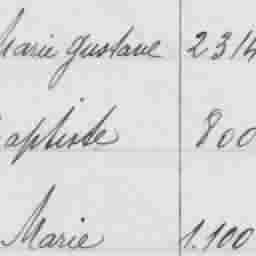 Marie Gustave 2314
Baptiste 800
Marie 1.100